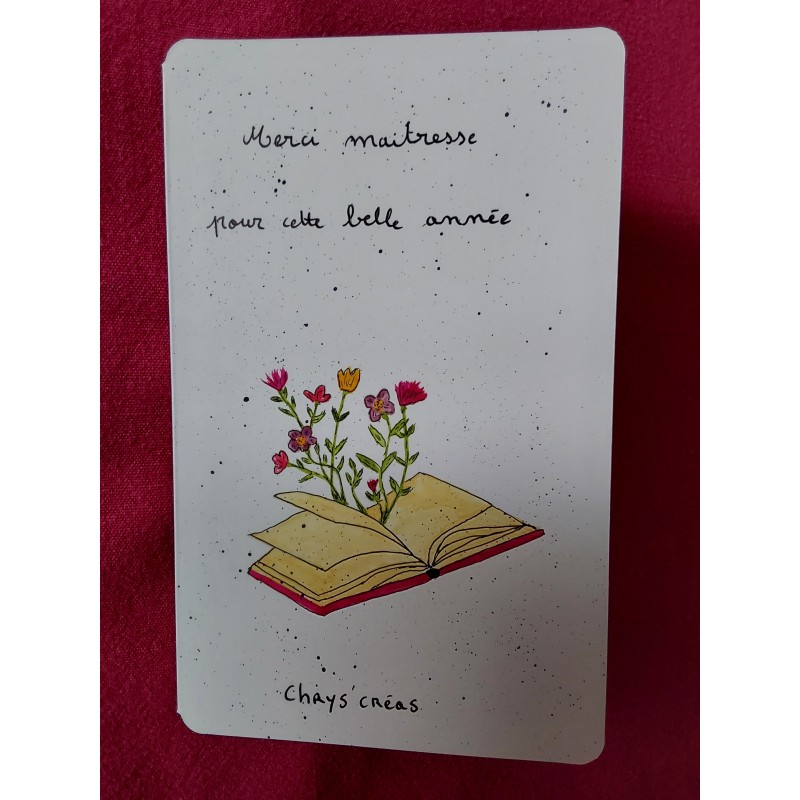 Merci maitresse
pour cette belle année
Chrys'créas